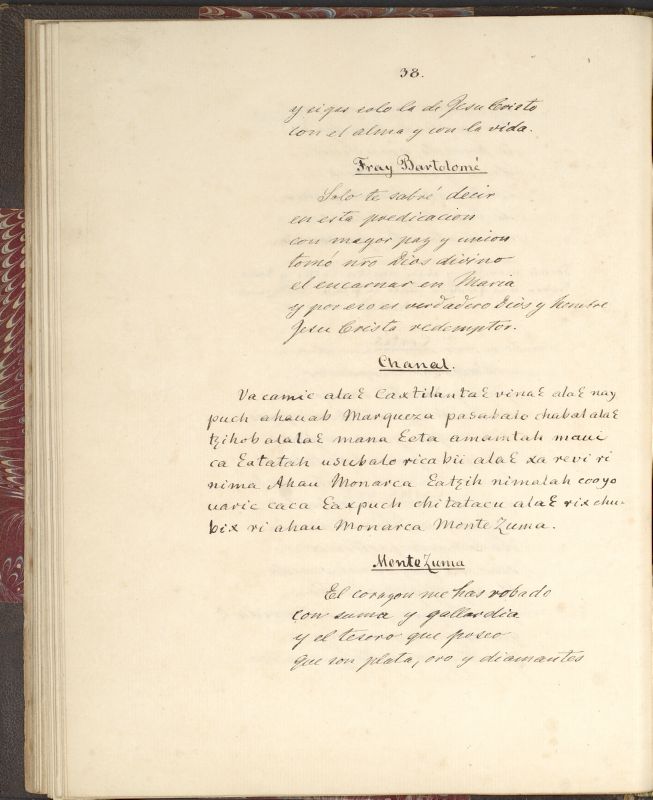 38.
y sigas solo la de Jesu Cristo
con el alma y con la vida.
Fray Bartolomé
Solo te sabré decir
en esta predicacion
con mayor paz y union
tomó nro Dios divino
el encarnar en Maria
y por eso es verdadero Dios y hombre
Jesu Crista redemptor.
Chanal.
Vacamic alaꜪ CaxtilantaꜪ vinaꜪ alaꜪ nay
puch ahauab Marqueza pasubalo chabal alaꜪ
tzihob alalaꜪ mana Ꜫeta amamtah maui
ca Ꜫatatah usubalo rica bii alaꜪ xa revi ri
nima Ahau Monarca Ꜫatzih nimalah cooyo
uaric caca Ꜫaxpuch chitatacu alaꜪ rix chu-
bix ri ahau Monarca MonteZuma.
MonteZuma
El corazon me has robado
con suma y gallardia
y el tesoro que poseo
que son plata, oro y diamantes